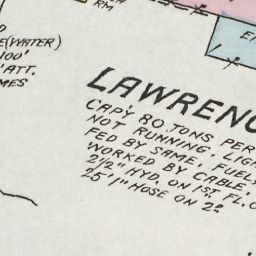 RM
E(WATER)
100'
'ATT.
MES
LAWRENC
CAP'Y 80 TONS PER
NOT RUNNING. LIGH
FED BY SAME. FUEL:
WORKED BY CABLE.
2½" HYD. ON 1ST FL. C
25' 1" HOSE ON 2D